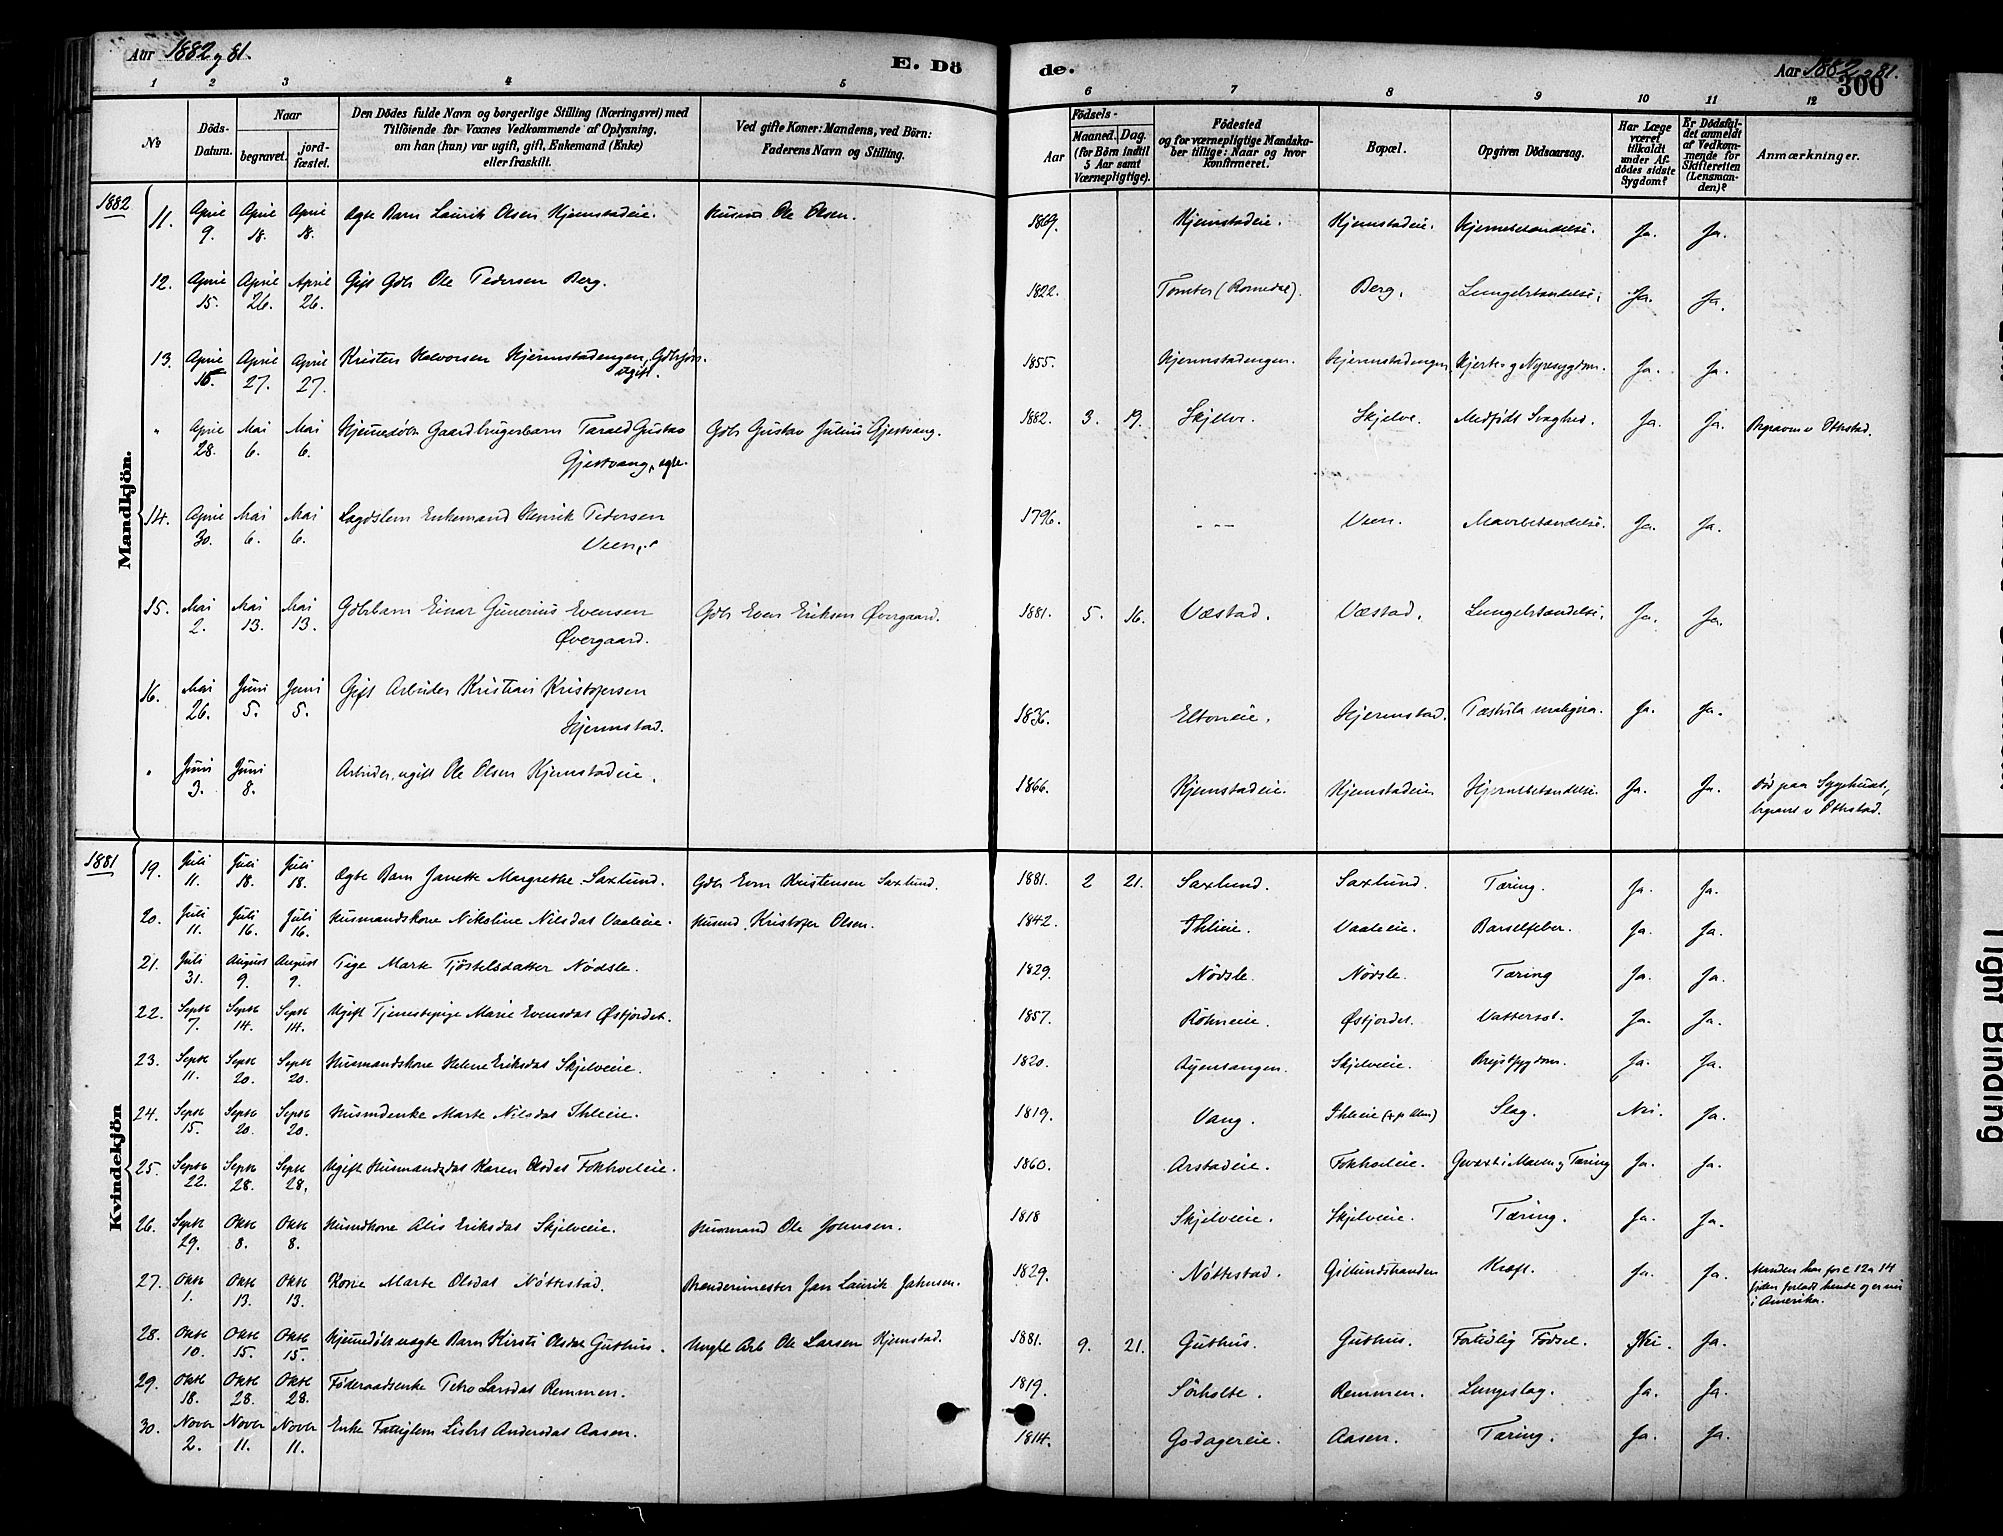 Aar 1882 og 81.
E. Dö
de.
Aar 1882 og 81.
300
1 2 3 4 5
6 7 8 9 10 11 12
No
Döds-Datum.
Naar
begravet.
jordfæstet.
Den Dödes fulde Navn og borgerlige Stilling (Næringsvei) med
Tilföiende for Voxnes Vedkommende af Oplysning,
om han (hun) var ugift, gift, Enkemand (Enke)
eller fraskilt.
Ved gifte Koner: Mandens, ved Börn:
Faderens Navn og Stilling.
Födsels-
Aar
Maaned. Dag.
(for Börn indtil
5 Aar samt
Værnepligtige).
Födested
og for værnepligtige Mandskaber tillige: Naar og hvor
konfirmeret.
Bopæl.
Opgiven Dödsaarsag.
Har Læge
været
tilkaldt
under Afdödes sidste
Sygdom?
Er Dödsfaldet anmeldt
af Vedkommende for
Skifteretten
(Lensmanden)?
Anmærkninger.
Mandkjön.
1882
11. April 9. April 18. April 18. Ægte Barn Laurits Olsen Hjemstadeie. Husmd Ole Olsen. 1869. Hjemstadeie. Hjemstadeie. Hjernebetændelse. Ja. Ja.
12. April 15. April 26. April 26. Gift Gdbr Ole Pedersen Berg. 1822. Tomter (Romedal). Berg. Lungebetændelse. Ja. Ja.
13. April 15. April 27. April 27. Kristen Halvorsen Hjermstadengen, Gdbrsøn.
ugift. 1855. Hjermstadengen. Hjermstadengen. Hjerte- og Nyresygdom. Ja. Ja.
" April 28. Mai 6. Mai 6. Hjemmedøbt Gaardbrugerbarn Tarald Gustav
Gjestvang, ægte. Gdbr Gustav Julius Gjestvang. 1882. 3. 19. Skjelve. Skjelve. Medfødt Svaghed. Ja. Ja. Begraven v Ottestad.
14. April 30. Mai 6. Mai 6. Lægdslem Enkemand Henrik Pedersen
Veen. 1796. - - - Veen. Mavebetændelse. Ja. Ja.
15. Mai 2. Mai 13. Mai 13. Gdbrbarn Einar Gunerius Evensen
Øvergaard. Gdbr Even Eriksen Øvergaard. 1881. 5. 16. Væstad. Væstad. Lungebetændelse. Ja. Ja.
16. Mai 26. Juni 5. Juni 5. Gift Arbeider Kristian Kristofersen
Hjermstad. 1836. Eltoneie. Hjermstad. maligna. Ja. Ja.
" Juni 3. Juni 8. Arbeider, ugift Ole Olsen Hjemstadeie. 1866. Hjemstadeie. Hjemstadeie. Hjernebetændelse. Ja. Ja. Død paa Sygehuset,
begravet v Ottestad.
Kvindekjön
1881
19. Juli 11. Juli 18. Juli 18. Ægte Barn Janette Margrethe Saxlund. Gdbr Even Kristensen Saxlund. 1881. 2 21. Saxlund. Saxlund. Tæring. Ja. Ja.
20. Juli 11. Juli 16. Juli 16. Husmandskone Nikoline Nilsdat Vaaleeie. Husmd. Kristofer Olsen. 1842. Ihleeie. Vaaleeie. Barselfeber. Ja. Ja.
21. Juli 31. August 9. August 9. Pige Marte Tjøstelsdatter Nødsle. 1829. Nødsle. Nødsle. Tæring Ja. Ja.
22. Septb 7. Septb 14. Septb 14. Ugift Tjenestepige Marie Evensdat Østjordet. 1857. Røhneeie. Østjordet. Vattersot. Ja. Ja.
23. Septb 11. Septb 20. Septb 20. Husmandskone Helene Eriksdat Skjelveeie. 1820. Skjelveeie. Brystsygdom. Ja. Ja.
24. Septb 15. Septb 20. Septb 20. Husmdenke Marte Nilsdat Ihleeie. 1819. Vang. Ihleeie Slag. Nei. Ja.
25. Septb 22. Septb 28. Septb 28. Ugift Husmandsdat Karen Olsdat Fokholeie. 1860. Arstadeie. Fokholeie. Gvæxt i Maven og Tæring Ja. Ja.
26. Septb 29. Oktb 8. Oktb 8. Husmdkone Alis Eriksdat Skjelveeie. Husmand Ole Johnsen. 1818 Skjelveeie. Skjelveeie. Tæring. Ja. Ja.
27. Oktb 1. Oktb 13. Oktb 13. Kone Marte Olsdat Nøttestad. Brænderimester Jan Laurik Jahnsen. 1829. Nøttestad. Gillundstranden Kræft. Ja. Ja. Manden har for c 12 a 14
siden forladt hende og er nu
i Amerika.
28. Oktb 10. Oktb 15. Oktb 15. Hjemmedøbt uægte Barn Kirsti Olsdat Guthus. Ungk Arb Ole Larsen Hjemstad. 1881. 9. 21. Guthus. Guthus. Fortidlig Fødsel. Nei. Ja.
29. Oktb 18. Oktb 28. Oktb 28. Føderaadsenke Petro Larsdat Remmen. 1819. Sørholte. Remmen. Lungeslag. Ja. Ja.
30. Novbr 2. Novbr 11. Novbr 11. Enke Fattiglem Lisbet Andersdat Aasen. 1814. Godagereie. Aasen. Tæring. Ja. Ja.
Tight Binding